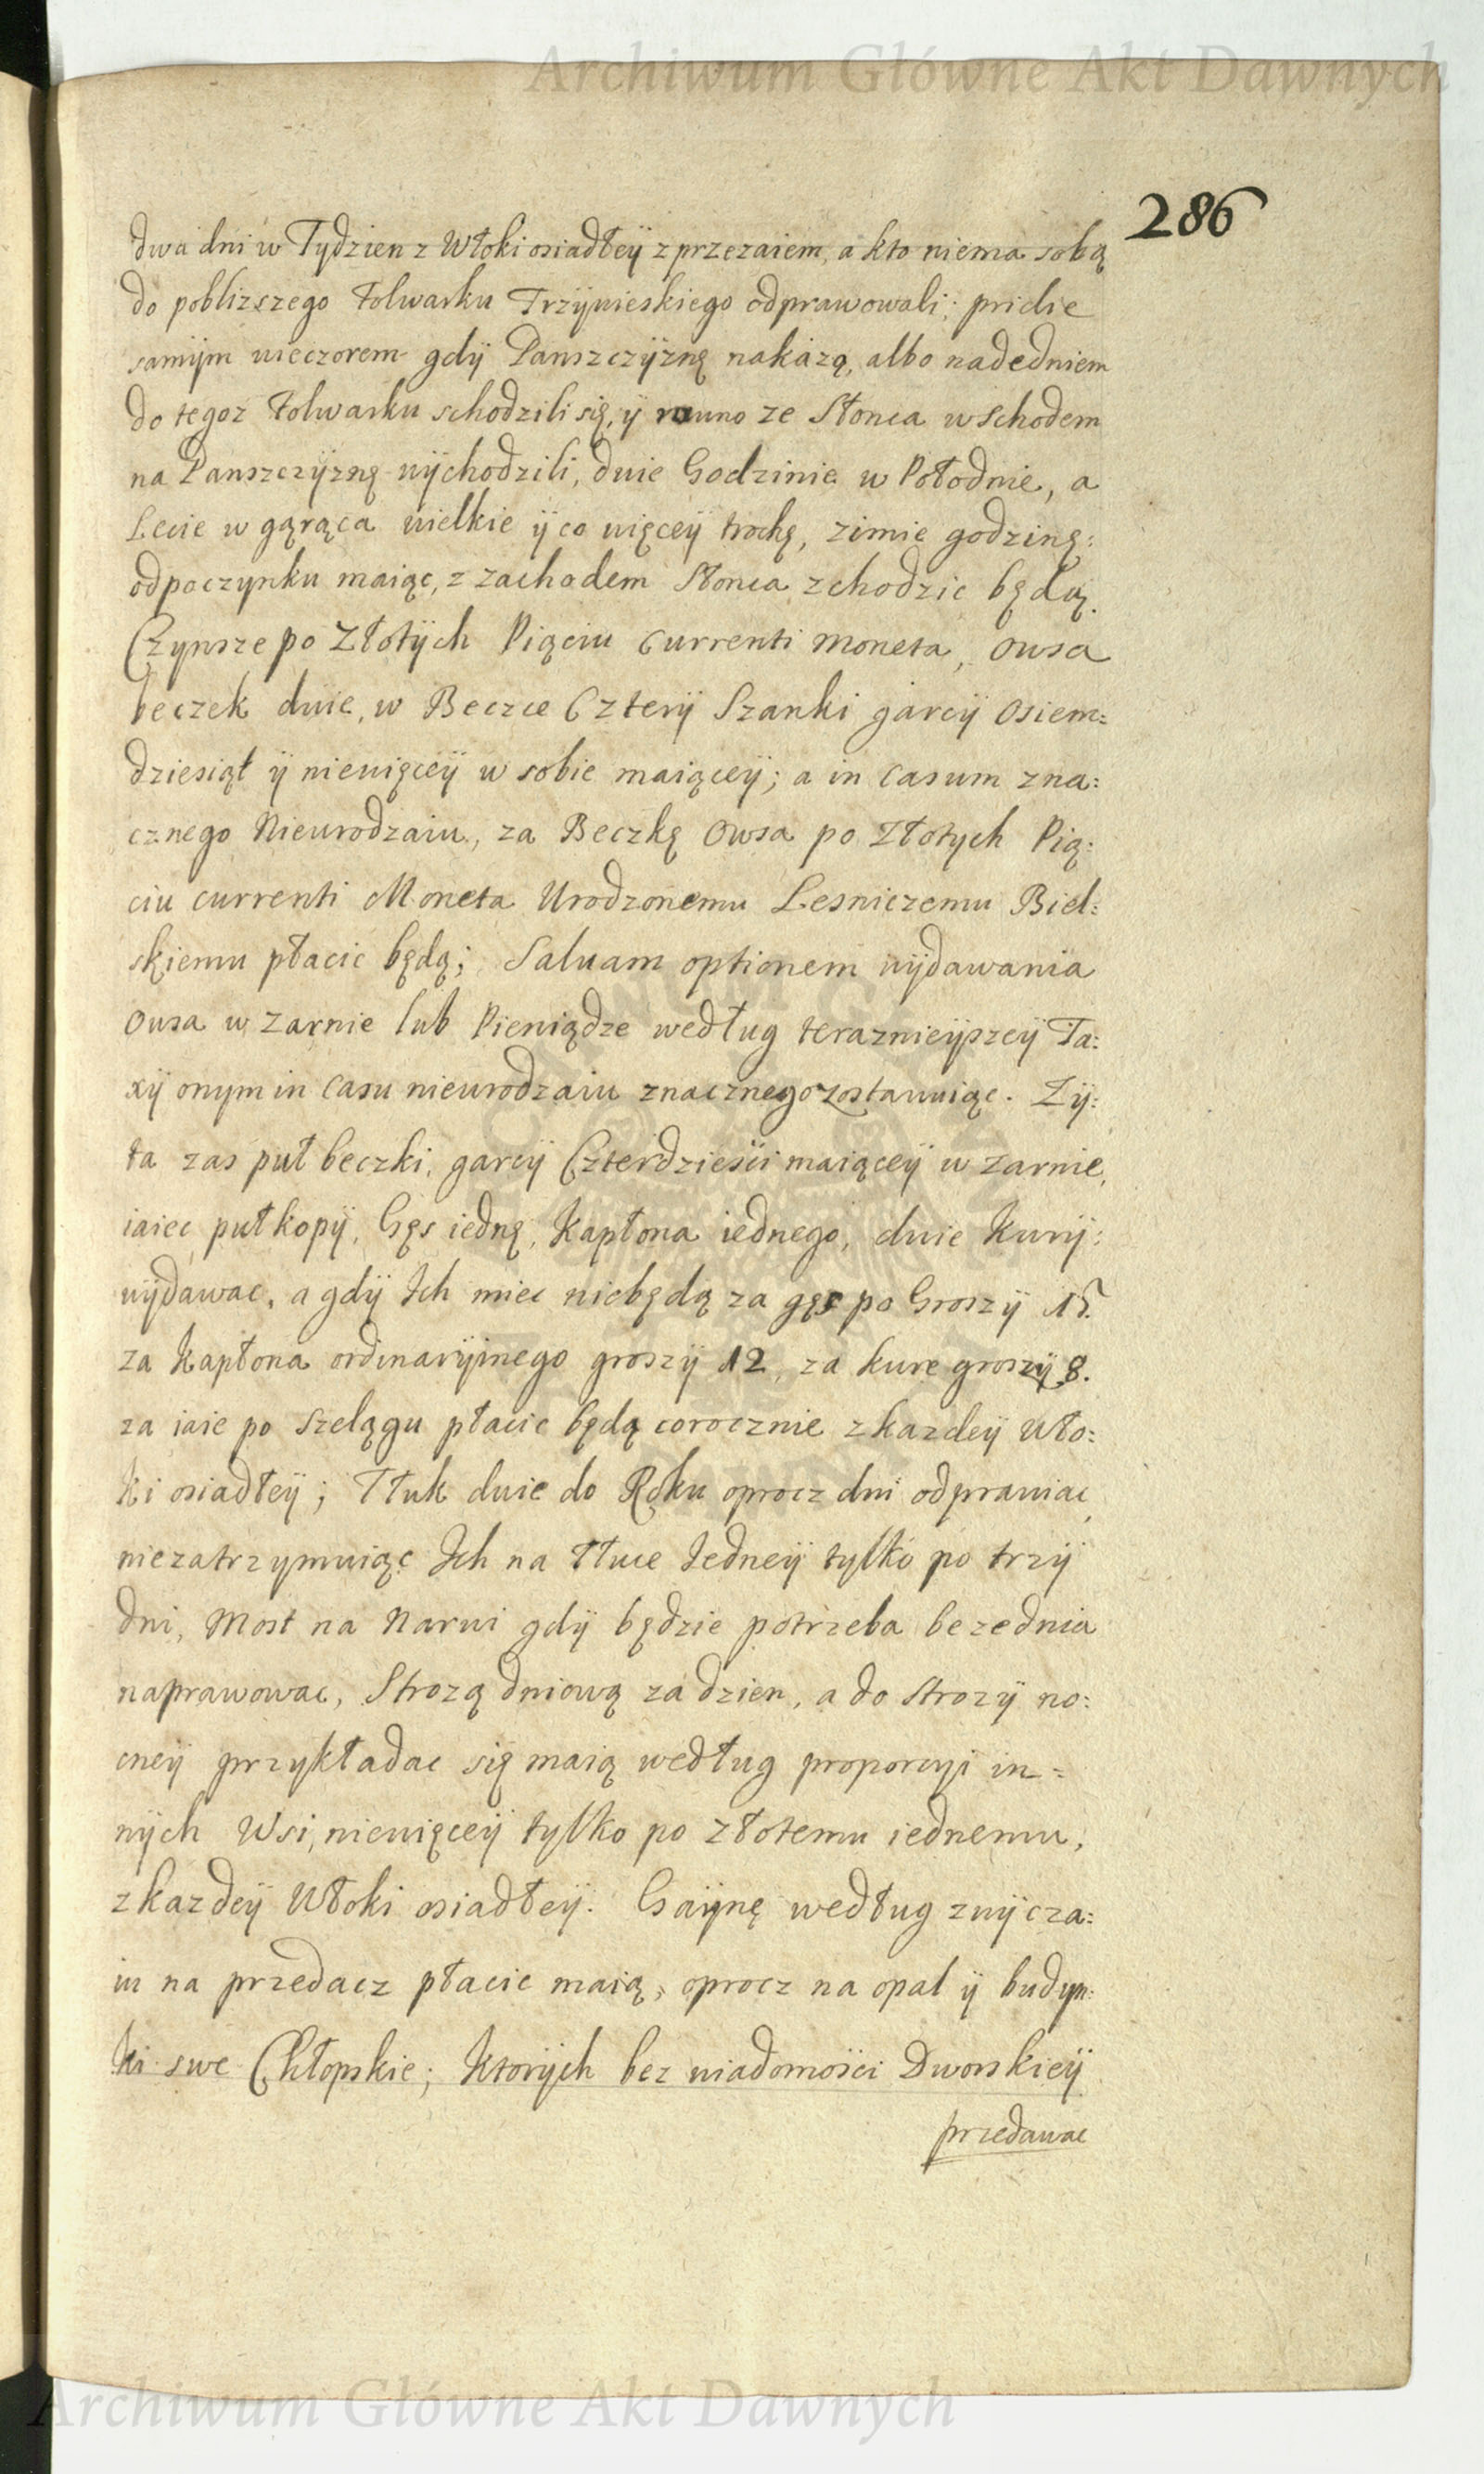 Archiwum Główne Akt Dawnych
286
dwa dni w Tydzien z Włoki osiadłeÿ z przezaiem, a kto niema sobą
do poblizszego Folwarku Trzÿwieskiego odprawowali; pridie
samÿm wieczorem gdÿ Panszczÿznę nakazą, albo nadedniem
do tegoz Folwarku schodzili się, ÿ rowno ze Słonca wschodem
na Panszczÿznę wÿchodzili, dwie Godzinie w Połodnie, a
Lecie w gąrąca wielkie ÿ co więceÿ trochę, zimie godzinę:
odpoczynku maiąc, z zachodem Słonca zchodzic będą.
Czynsze po Złotÿch Pięciu Currenti Moneta, Owsa
beczek dwie, w Beczce Czterÿ Szanki garcÿ Osiem:
dziesiąt ÿ niewięceÿ w sobie maiąceÿ; a in casum zna:
cznego Nieurodzaiu, za Beczkę Owsa po Złotych Pię:
ciu currenti Moneta Urodzonemu Lesniczemu Biel:
skiemu płacic będą; Saluam optionem wÿdawania
Owsa w Zarnie lub Pieniądze według teraznieÿszeÿ Ta:
xÿ onym in Casu nieurodzaiu znacznego zostawuiąc. Zÿ:
ta zas puł beczki, garcÿ Czterdziesci maiąceÿ w Zarnie,
iaiec puł kopÿ, Gęs iednę, Kapłona iednego, dwie Kurÿ:
wÿdawac, a gdÿ Ich miec niebędą za gęs po Groszÿ 15.
za Kapłona ordinarÿinego groszÿ 12, za kure groszÿ 8.
za iaie po Szelągu płacic będą corocznie z kazdeÿ Wło:
ki osiadłeÿ; Tłuk dwie do Roku oprocz dni odprawiac,
niezatrzymuiąc Ich na Tłuce Iedneÿ tylko po trzÿ
dni, Most na Narwi gdÿ będzie potrzeba bezednia
naprawowac, Strozą dniową za dzien, a do Strozÿ no:
cneÿ przykładac się maią według proporcyi in=
nÿch Wsi, niewięceÿ tylko po złotemu iednemu,
z kazdeÿ Włoki osiadłeÿ. Gaÿnę według zwÿcza:
iu na przedacz płacic maią, oprocz na opal ÿ budyn:
ki swe Chłopskie; Ktorÿch bez wiadomosci Dworskieÿ
przedawac
Archiwum Główne Akt Dawnych